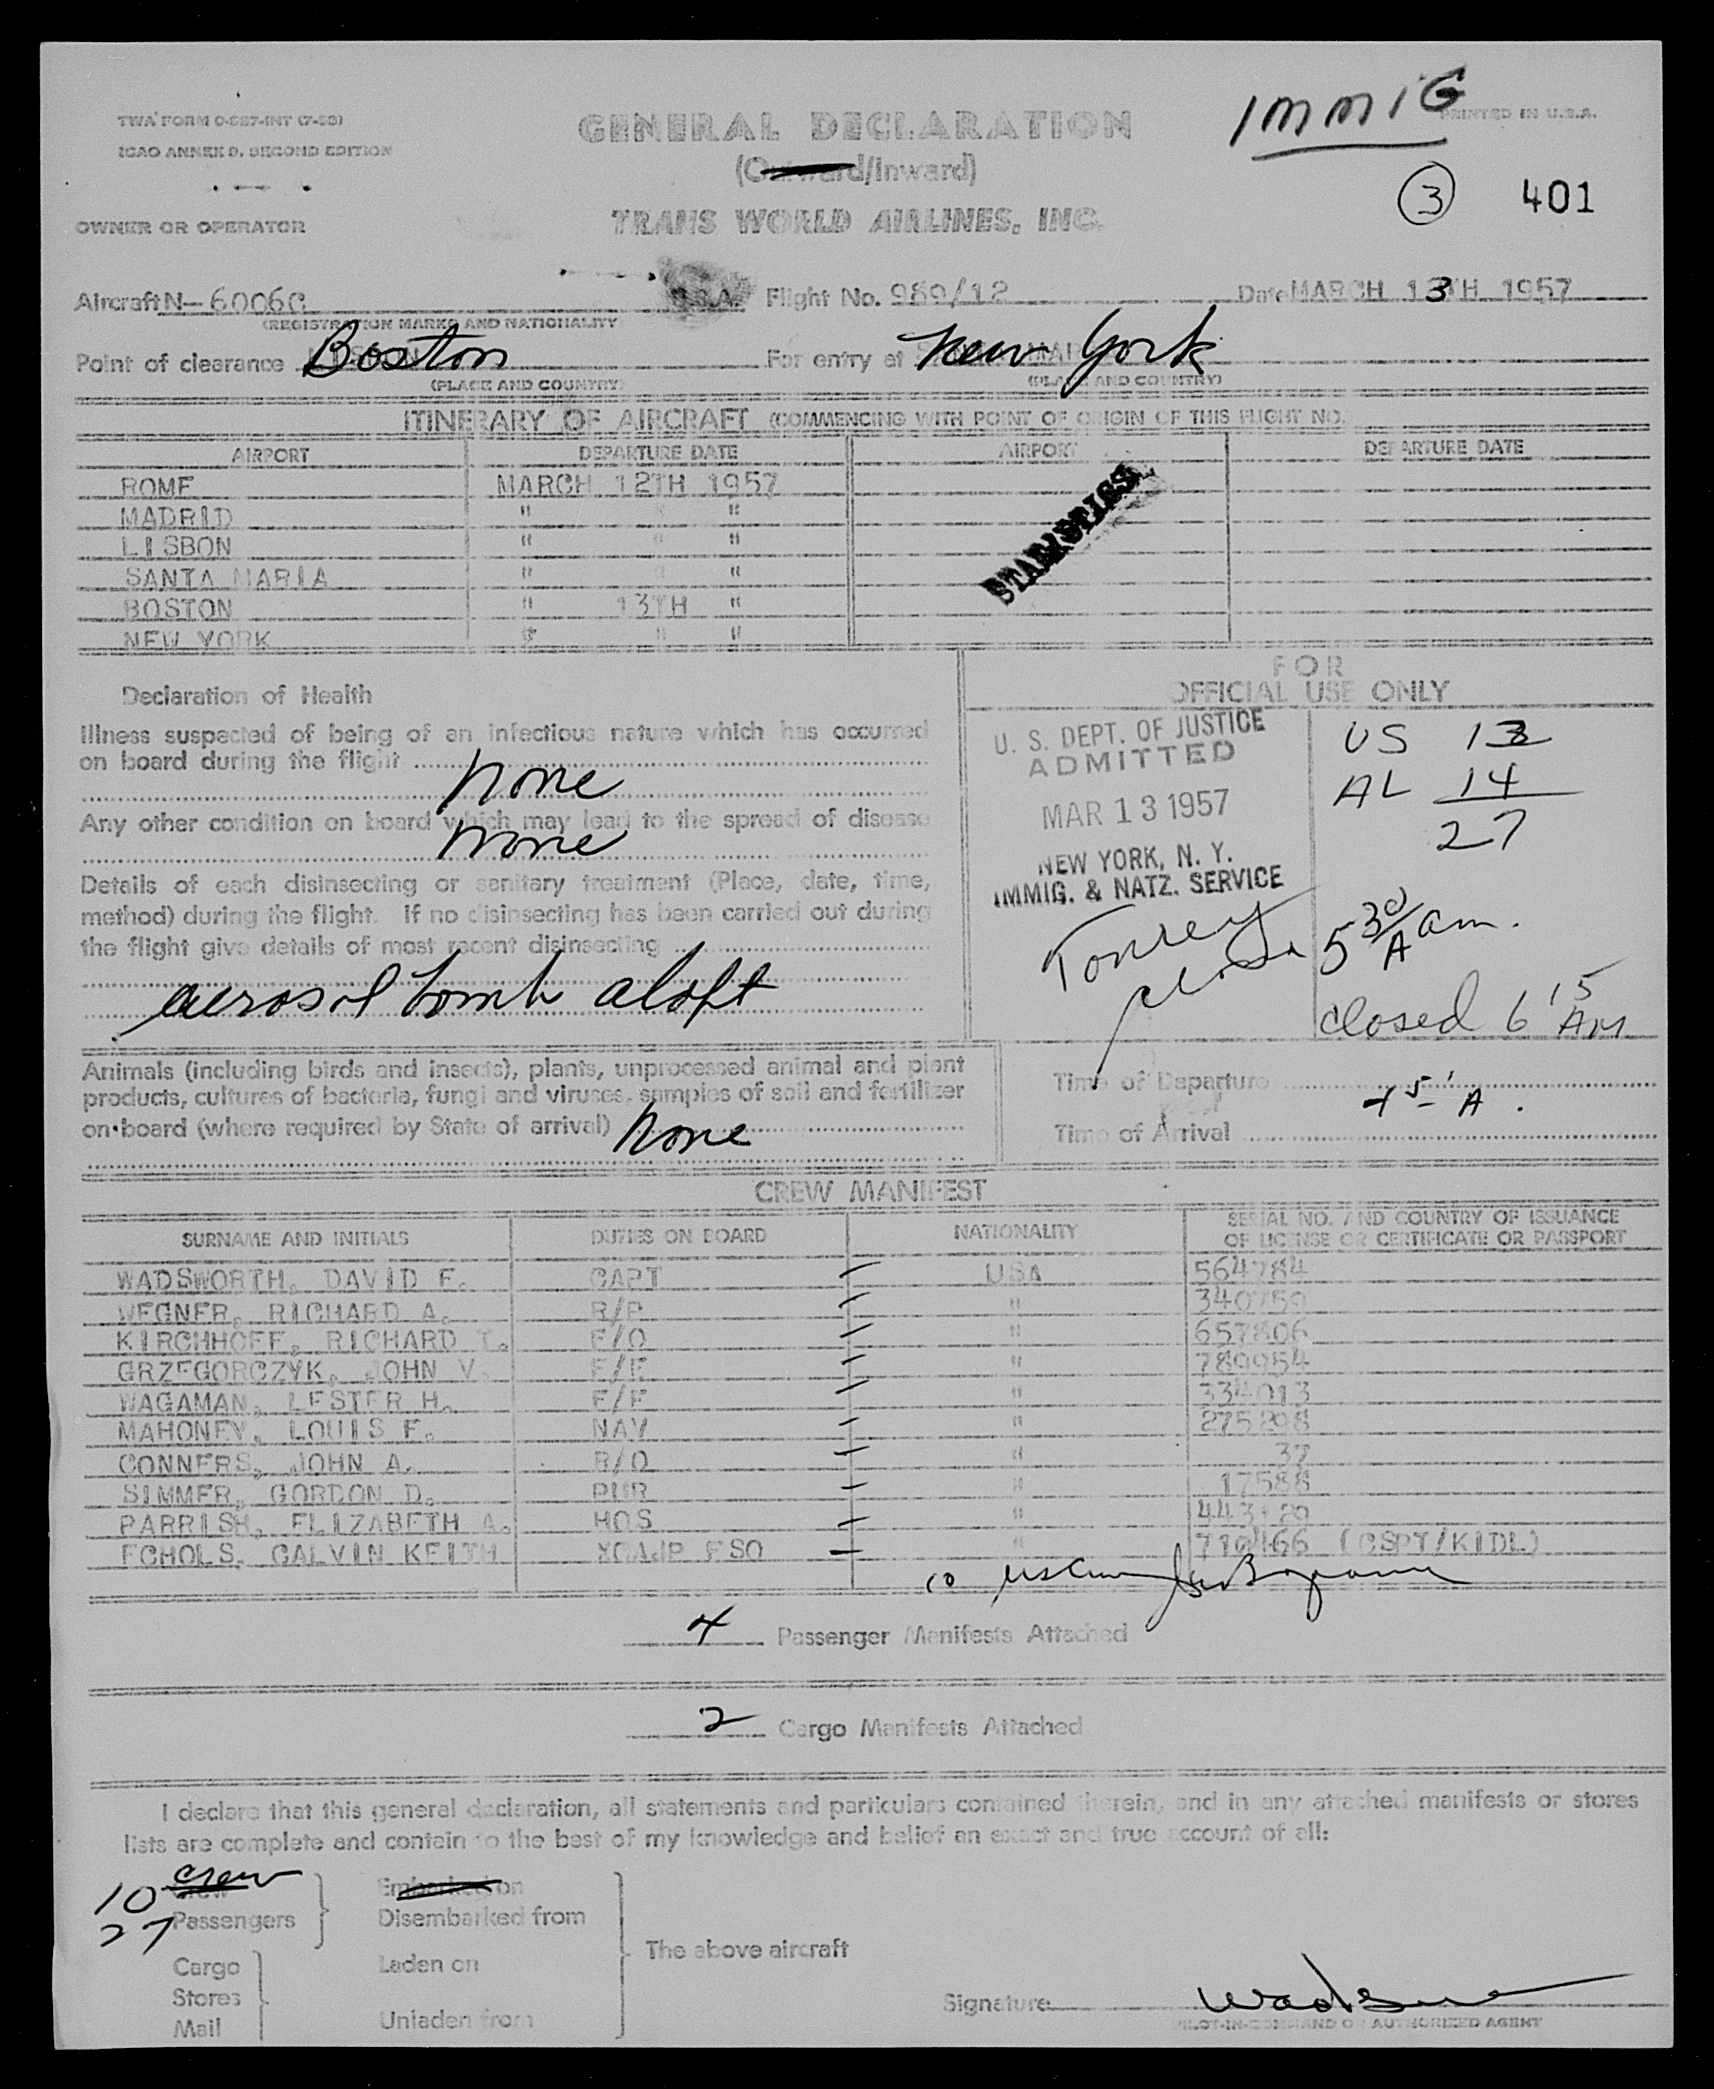 IMMIG
TWA FORM O-987-INT (7-53)
PRINTED IN U.S.A.
ICAO ANNEX 9, SECOND EDITION
GENERAL DECLARATION
(Outward/Inward)
3 401
OWNER OR OPERATOR
TRANS WORLD AIRLINES, INC.
Aircraft N-6006C U.S.A. Flight No. 989/12 Date MARCH 13TH 1957
(REGISTRATION MARKS AND NATIONALITY
Point of clearance Boston For entry at New York
(PLACE AND COUNTRY) (PLACE AND COUNTRY)
ITINERARY OF AIRCRAFT (COMMENCING WITH POINT OF ORIGIN OF THIS FLIGHT NO.
AIRPORT DEPARTURE DATE AIRPORT DEPARTURE DATE
ROME MARCH 12TH 1957
MADRID " " "
LISBON " " "
SANTA MARIA " " "
BOSTON " 13TH "
NEW YORK " " "
STATISTICS
Declaration of Health
Illness suspected of being of an infectious nature which has occurred
on board during the flight
None
Any other condition on board which may lead to the spread of disease
None
Details of each disinsecting or sanitary treatment (Place, date, time,
method) during the flight. If no disinsecting has been carried out during
the flight give details of most recent disinsecting
aerosol bomb aloft
FOR
OFFICIAL USE ONLY
U. S. DEPT. OF JUSTICE
ADMITTED
MAR 13 1957
NEW YORK, N. Y.
IMMIG. & NATZ. SERVICE
US 13
AL 14
27
5 30/A am.
closed 6 15 AM
Animals (including birds and insects), plants, unprocessed animal and plant
products, cultures of bacteria, fungi and viruses, samples of soil and fertilizer
on board (where required by State of arrival) None
Time of Departure
Time of Arrival
CREW MANIFEST
SURNAME AND INITIALS DUTIES ON BOARD NATIONALITY SERIAL NO. AND COUNTRY OF ISSUANCE
OF LICENSE OR CERTIFICATE OR PASSPORT
WADSWORTH, DAVID F. CAPT USA 564784
WEGNER, RICHARD A. R/P " 340759
KIRCHHOFF, RICHARD T. F/O " 657806
GRZEGORCZYK, JOHN V. F/E " 789954
WAGAMAN, LESTER H. F/E " 334013
MAHONEY, LOUIS F. NAV " 275298
CONNERS, JOHN A. R/O " 37
SIMMER, GORDON D. PUR " 17588
PARRISH, ELIZABETH A. HOS " 443129
ECHOLS, CALVIN KEITH XCAJP FSO " 710466 (CSPT/KIDL)
10
4 Passenger Manifests Attached
2 Cargo Manifests Attached
I declare that this general declaration, all statements and particulars contained therein, and in any attached manifests or stores
lists are complete and contain to the best of my knowledge and belief an exact and true account of all:
10 crew Embarked on
27 Passengers Disembarked from
The above aircraft
Cargo Laden on
Stores
Mail Unladen from
Signature
PILOT-IN-COMMAND OR AUTHORIZED AGENT